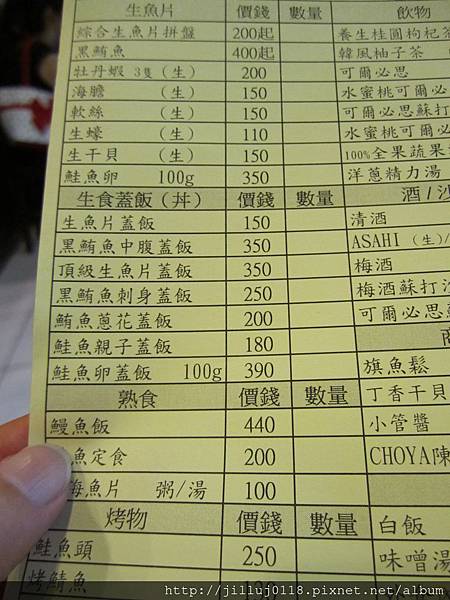 生魚片 價錢 數量 飲物
綜合生魚片拼盤 200起 養生桂圓枸杞茶
黑鮪魚 400起 韓風柚子茶
牡丹蝦 3隻 (生) 200 可爾必思
海膽 (生) 150 水蜜桃可爾必
軟絲 (生) 150 可爾必思蘇打
生蠔 (生) 110 水蜜桃可爾必
生干貝 (生) 150 100%全果蔬果
鮭魚卵 100g 350 洋蔥精力湯
生食蓋飯(丼) 價錢 數量 酒/沙
生魚片蓋飯 150 清酒
黑鮪魚中腹蓋飯 350 ASAHI (生)/
頂級生魚片蓋飯 350 梅酒
黑鮪魚刺身蓋飯 250 梅酒蘇打沙
鮪魚蔥花蓋飯 200 可爾必思
鮭魚親子蓋飯 180
鮭魚卵蓋飯 100g 390 旗魚鬆
熟食 價錢 數量 丁香干貝
鰻魚飯 440 小管醬
魚定食 200 CHOYA陳
海魚片 粥/湯 100
烤物 價錢 數量 白飯
鮭魚頭 250 味噌湯
烤鯖魚
http://jilluj0118.pixnet.net/album